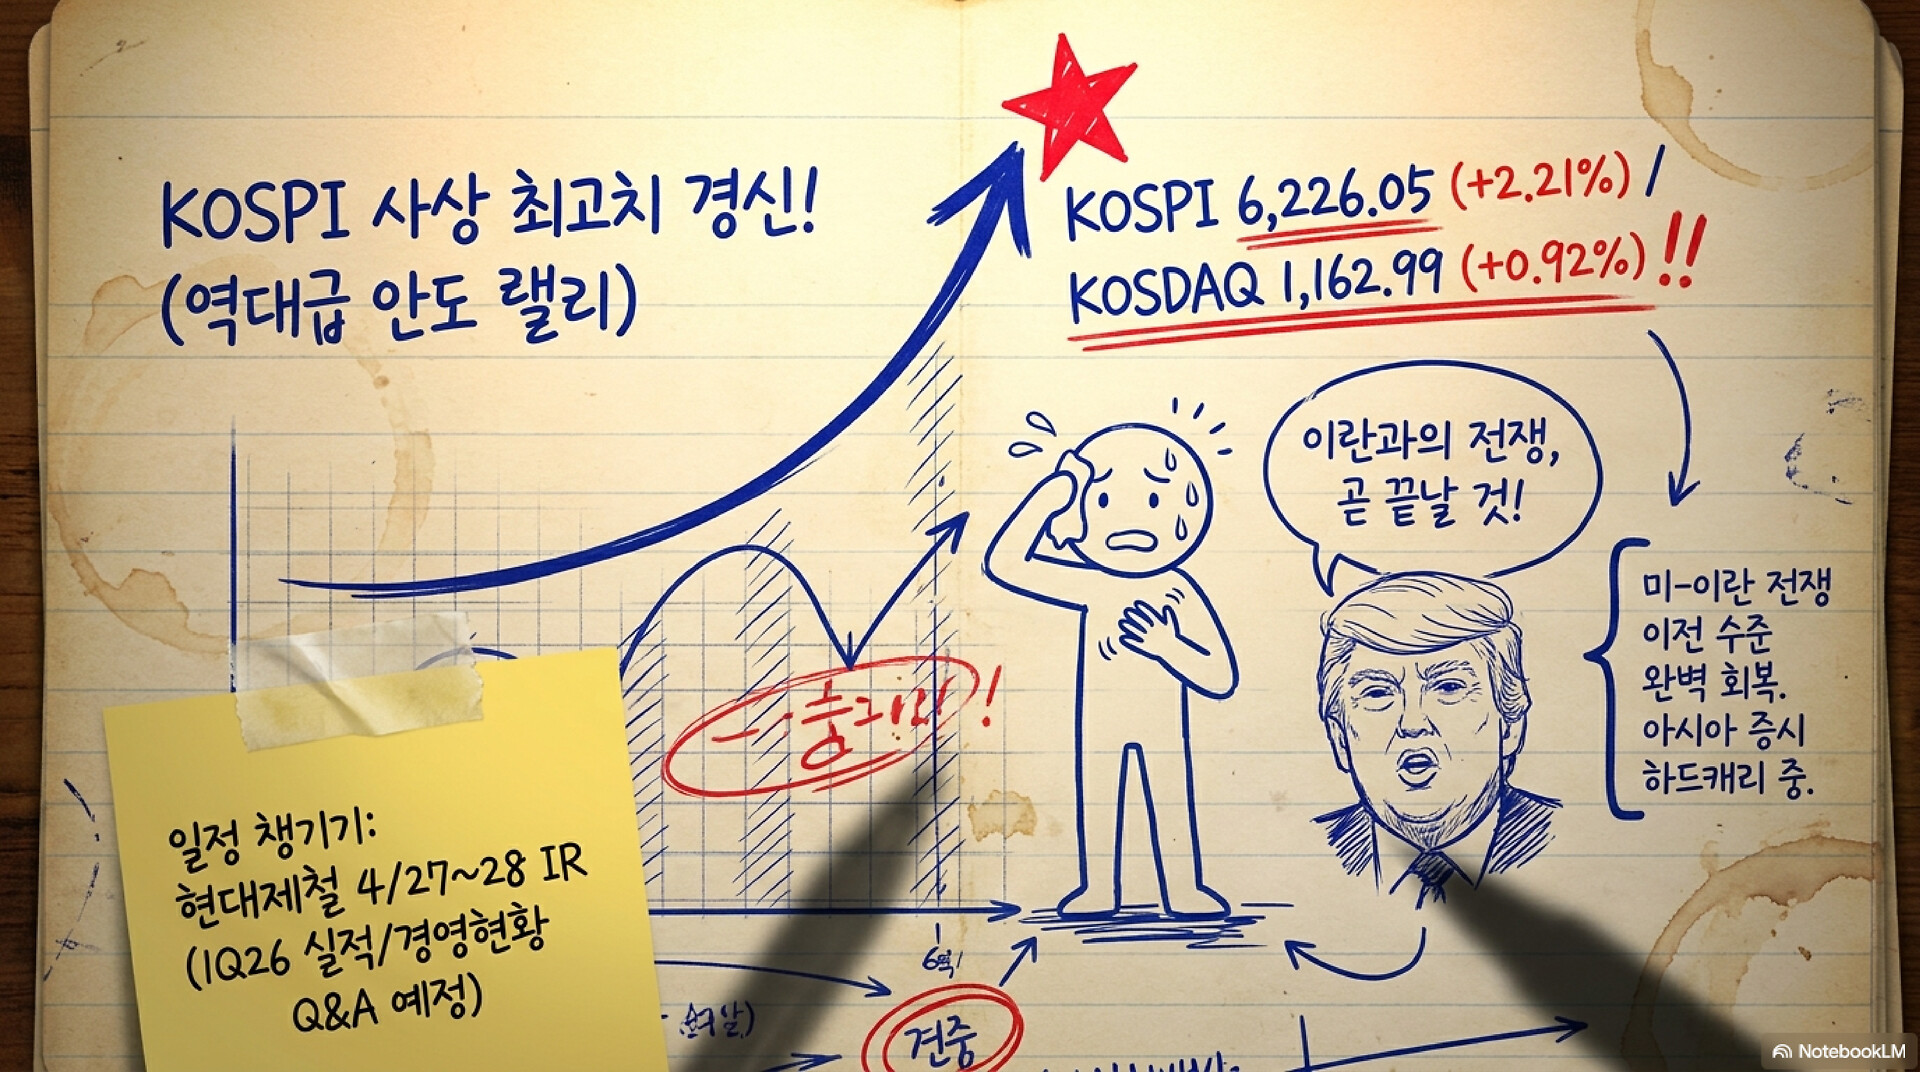 KOSPI 사상 최고치 경신!
(역대급 안도 랠리)
KOSPI 6,226.05 (+2.21%) /
KOSDAQ 1,162.99 (+0.92%) !!
이란과의 전쟁,
곧 끝날 것!
미-이란 전쟁
이전 수준
완벽 회복.
아시아 증시
하드캐리 중.
일정 챙기기:
현대제철 4/27~28 IR
(1Q26 실적/경영현황
Q&A 예정)
견중
NotebookLM